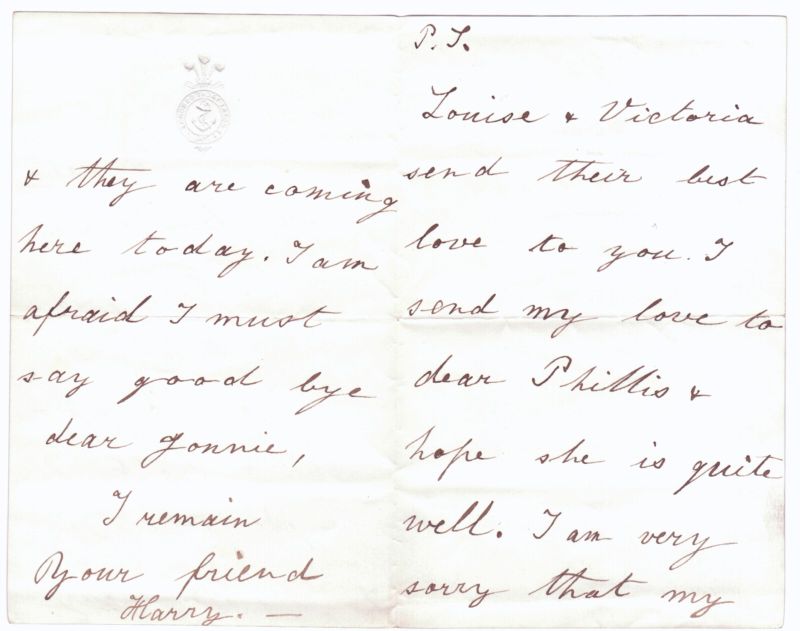 & they are coming
here today. I am
afraid I must
say good bye
dear Jonnie,
I remain
Your friend
Harry. —
P.S.
Louise & Victoria
send their best
love to you. I
send my love to
dear Phillis &
hope she is quite
well. I am very
sorry that my